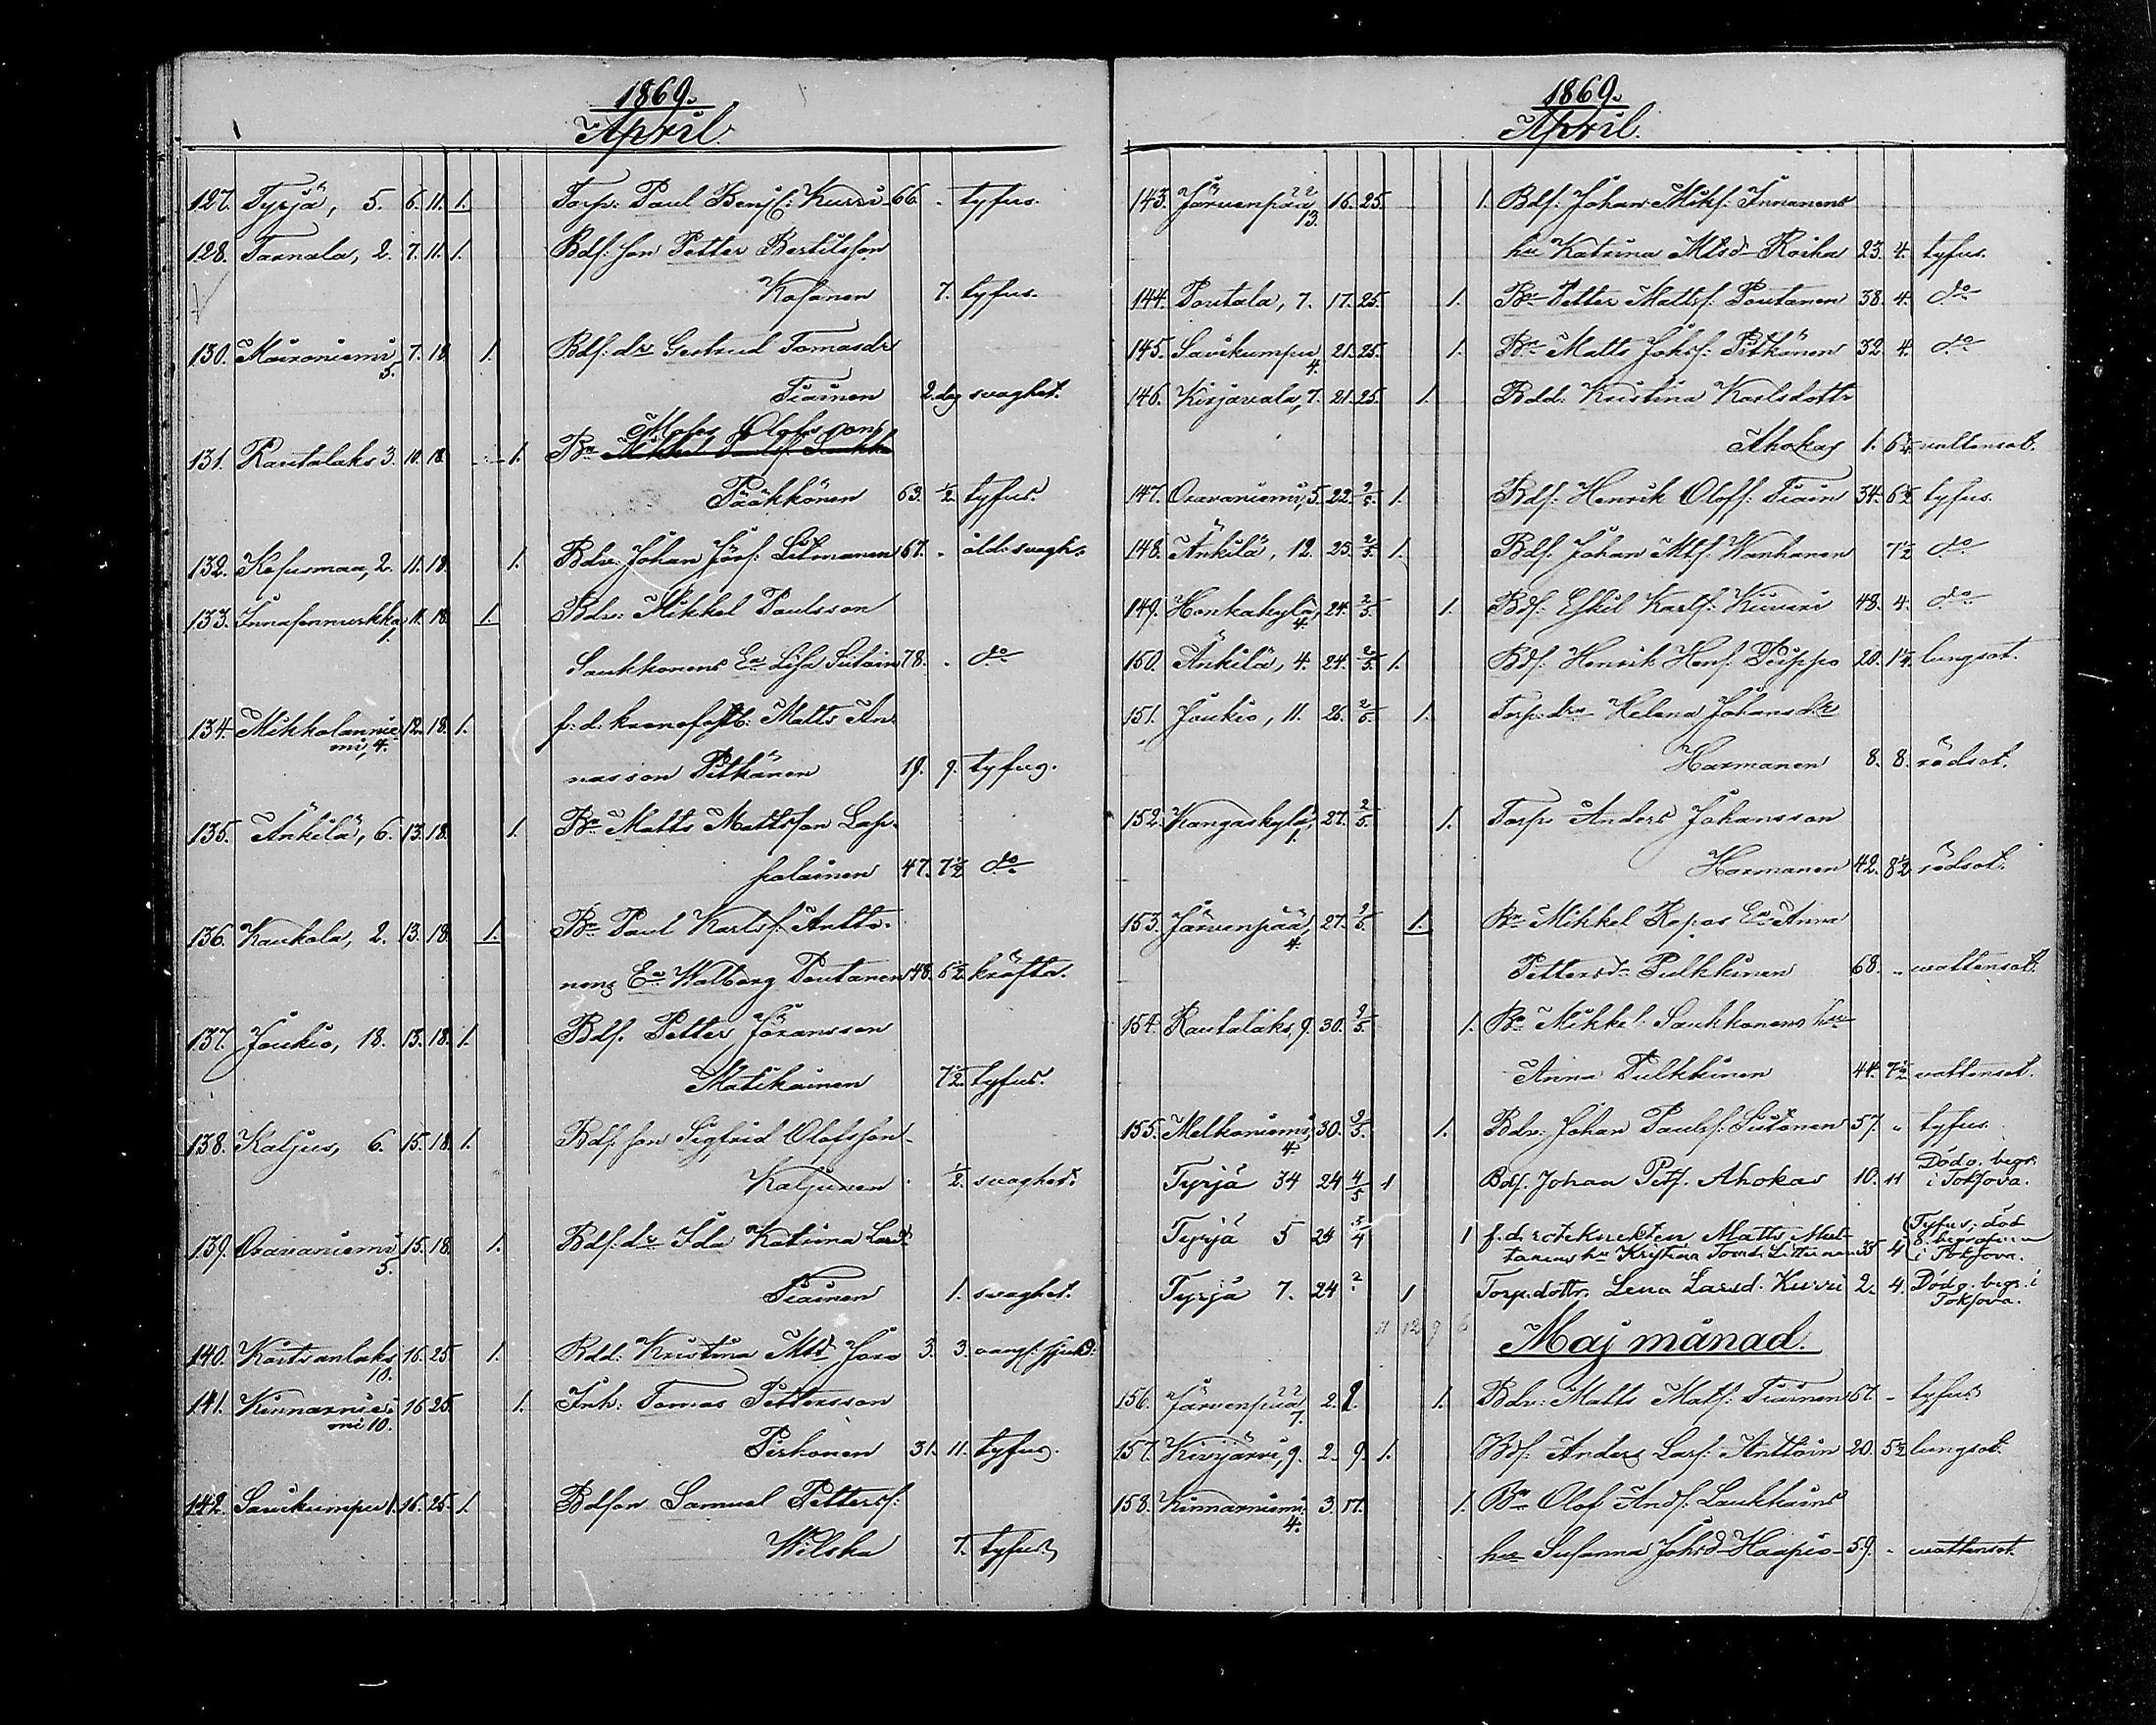 1869.
April.
127. Tyrjä, 5. 6. 11. 1. Torp: Paul Bensf: Kurri 66. - tyfus.
128. Tarnala, 2. 7. 11. 1. Bdf: son Petter Bertilsson
Kosonen 7. tyfus.
130. Moironiemi 7. 18. 1. Bdf: dr Gertrud Tomasdr
5.
Tiainen 2. dag svaghet.
Mofes Olofsson
131. Rautalaks 3. 10. 18. 1. Bn Mikkel Paulsf. Saukko
Pääkkönen 63. ½. tyfus.
132. Kesusmaa, 2. 11. 18. 1. Bdn: Johan Jörs: Litmanen 67. - åld: svagh.
133. Innasennurkka 11. 18. 1. Bdn: Mikkel Paulsson
1.
Saukkonens Ea Lisa Siitoin 78. - do
134. Mikkolannie 12. 18. 1. f. d. kronofogtb: Matts An-
mi, 4.
nasson Pitkänen 19. 9. tyfus.
135. Änkilä, 6. 13. 18. 1. Bn Matts Mattsson Lap-
palainen 47. 7½ do
136. Kaukola, 2. 13. 18. 1. Bn Paul Karlsf. Antto-
nens Ea Walborg Poutanen 48. 5½ kräfta.
137. Joukio, 18. 13. 18. 1. Bdf. Petter Göransson
Matikainen 7½ tyfus.
138. Kaljus, 6. 15. 18. 1. Bdf. son Sigfrid Olofsson
Kaljunen ½. svaghet.
139. Oravaniemi 15. 18. 1. Bdf: dr Ida Katrina Larsd
5.
Tiainen 1. svaghet.
140. Koitsanlaks 16. 25. 1. Bdd: Kristina Mtsd Joro 3. 3.
10.
141. Kinnarnie- 16. 25. 1. Inh: Tomas Pettersson
mi 10.
Pirhonen 31. 11. tyfus.
142. Savikumpu 1. 16. 25. 1. Bdson Samuel Pettersf:
Wilska 7. tyfus.
1869.
April.
143. Järvenpää 22 16. 25. 1. Bdf. Johan Mikf. Innanens
13.
hu Katrina Mtsd Roiha 23. 4. tyfus.
144. Poutala, 7. 17. 25. 1. Bn Petter Mattsf: Poutanen 38. 4. do
145. Savikumpu 21. 25. 1. Bn Matts Johsf: Pitkänen 32 4. do
4.
146. Kirjavala, 7. 21. 25. 1. Bdd: Kristina Karlsdottr
Ahokas 1. 6¾ vattensot.
147. Oravaniemi, 5. 22. 2/5. 1. Bdf: Henrik Olofs: Tiain 34. 6½ tyfus.
148. Änkilä, 12. 25. 2/5. 1. Bdf. Johan Mtf. Wanhanen 7½ do
149. Honkakylä, 24. 2/5. 1. Bdf: Eskil Karlf: Kiuuri 48. 4. do
4.
150. Änkilä, 4. 24. 2/5. 1. Bdf. Henrik Henf: Puppo 20. 1¼. lungsot.
151. Joukio, 11. 26. 2/5. 1. Torp: dr Helena Johansdr
Harmanen 8. 8. rödsot.
152. Kangaskylä, 27. 2/5. 1. Torp: Anders Johansson
1.
Harmanen 42. 8½ rödsot.
153. Järvenpää, 27. 2/5. 1. Bn Mikkel Repos Ea Anna
4.
Pettersdr Pulkkinen 68. - wattensot.
154. Rautalaks, 9. 30. 2/5. 1. Bn Mikkel Saukkonens hu
Anna Pulkkinen 44. 7½ vattensot.
155. Melkoniemi, 30. 2/5. 1. Bdn: Johan Paulsf. Siitonen 57. - tyfus.
4.
Tyrjä 34 24 4/5 1 Bdf. Johan Petf. Ahokas 10. 11 Död o. begr. i Toksova.
Tyrjä 5 24 3/4 1 f. d. roteknekten Matts Mut-
tanens hu Kristina Tomd. Littunen 35 4 Tyfus; död o. begrafven i Toksova.
Tyrjä 7. 24 2 1 Torp. dottr. Lena Larsd. Kurri 2. 4. Död o. begr. i Toksova.
11 12 9 6
Maj månad.
156. Järvenpää 22 2. 9. 1. Bdn: Matts Matf: Tiainen 67. - tyfus
7.
157. Kivijärvi, 9. 2. 9. 1. Bdf. Anders Larf: Anttoin 20. 5½ lungsot.
158. Kinnarniemi 3. 17. 1. Bn Olof Andf. Laukkains
4.
hu Susanna Johsd Haapio 59. - wattensot.